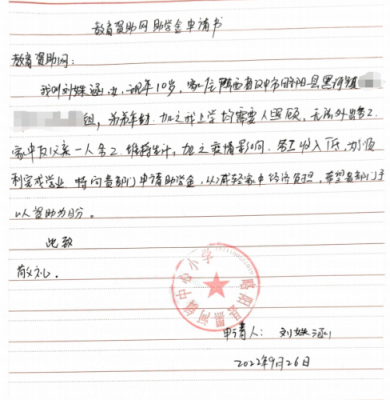 教育资助网助学金申请书
教育资助网:
我叫刘姝涵,女,现年10岁,家住陕西省汉中市略阳县黑河镇
组,爷爷年龄 加之我上学均需要人照顾,无法外出务工
家中仅父亲一人务工 维持生计,加之疫情影响 务工收入低,为顺
利完成学业 特向贵部门申请助学金,以减轻家中经济负担,希望贵部门予
以资助为盼。
此致
敬礼。
略阳县黑河镇中心小学
申请人: 刘姝涵
2022年9月26日